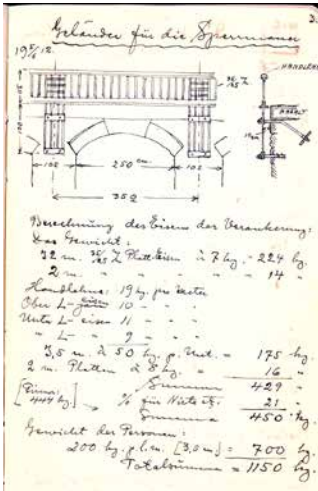 3.
Geländer für die Sperrmauer
19 5/6 12.
HANDLEHNE
BASALT
102
250 cm.
102
352
Berechnung des Eisens der Verankerung:
Das Gewicht:
32 m. Platteisen à 7 kg = 224 kg.
2 m. " " " " 14 "
Handlehne: 19 kg. per Meter
Ober L- eisen 10 - " -
Unter L- eisen 11 - " -
" L- " 9 - " -
3,5 m. à 50 kg. p. Mt. = 175 kg.
2 m. Platten à 8 kg. = 16 "
Summa 429 "
% für Niete etz. 21 "
Summa 450 kg.
Gewicht der Personen:
200 kg. p.l.m. [3,5 m] = 700 kg.
Totalsumma = 1150 kg.